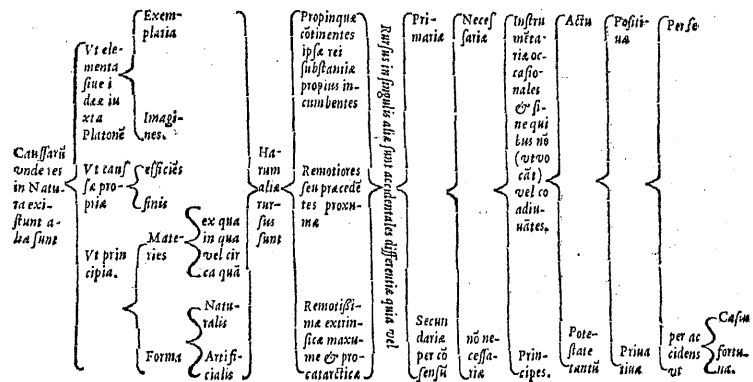 Caussarũ
vnde res
in Natu
ra exi-
stunt a-
liæ sunt
Vt ele-
menta
siue i
deæ iu
xta
Platonẽ
Exem-
plaria
Imagi-
nes.
Vt cauſ
ſæ pro-
priæ
efficiẽs
finis
Vt prin
cipia.
Mate-
ries
ex qua
in qua
vel cir
ca quã
Forma
Natu-
ralis
Artifi-
cialis
Ha-
rum
aliæ
rur-
sus
sunt
Propinquæ
cõtinentes
ipsæ rei
substantiæ
propius in-
cumbentes
Remotiores
seu præcedẽ
tes proxu-
mæ
Remotißi-
mæ extrin-
sicæ maxu-
me & pro-
catarcticæ
Rursus in singulis aliæ sunt accidentales differentiæ quia vel
Pri-
mariæ
Secun
dariæ
per cõ
sensũ
Necес
sariæ
nõ ne-
cessa-
riæ
Instru
mẽta-
riæ oc-
casio-
nales
& si-
ne qui
bus nõ
(vt vo
cãt)
vel co
adiu-
uãtes.
Prin-
cipes.
Actu
Pote-
state
tantũ
Positi-
uæ
Priua
tiuæ
Per se
per ac
cidens
vt
Casus
fortu-
na.